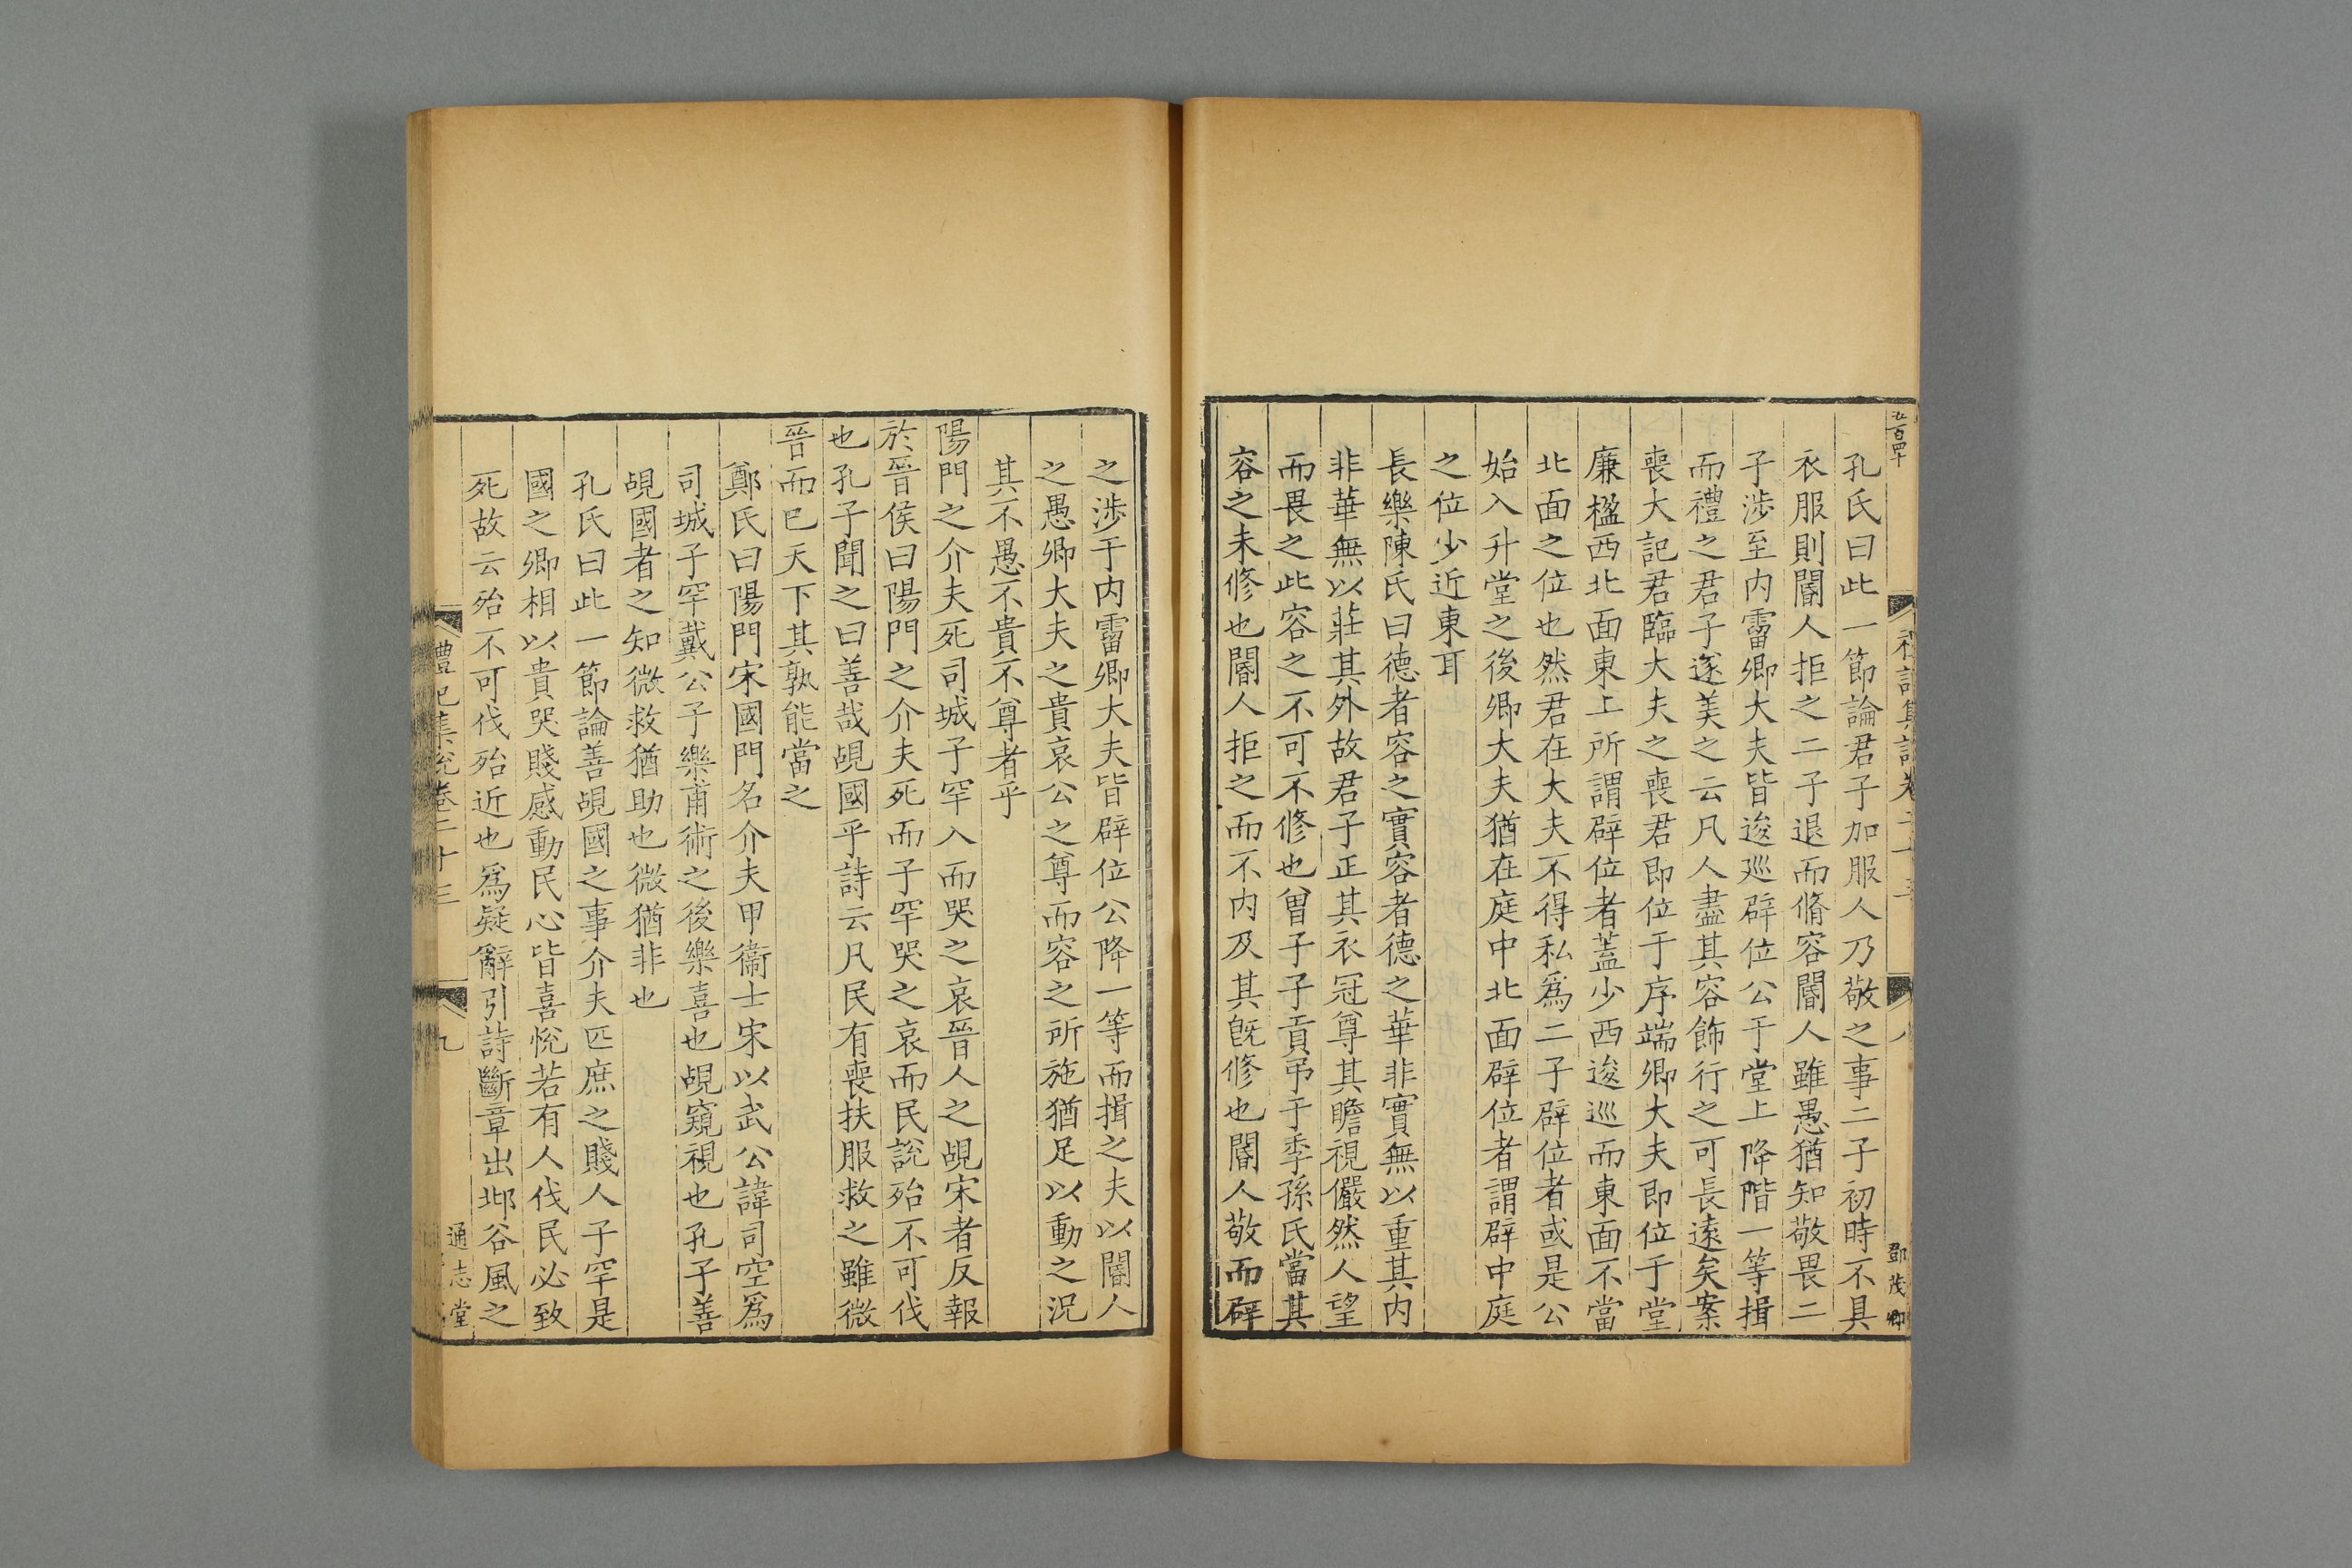 孔氏曰此一節論君子加服人乃敬之事二子初時不具
衣服則閽人拒之二子退而脩容閽人雖愚猶知敬畏二
子涉至内霤卿大夫皆逡廵辟位公于堂上降階一等揖
而禮之君子遂美之云凡人盡其容飾行之可長遠矣案
喪大記君臨大夫之喪君即位于序端卿大夫即位于堂
廉楹西北面東上所謂辟位者蓋少西逡巡而東面不當
北面之位也然君在大夫不得私爲二子辟位者或是公
始入升堂之後卿大夫猶在庭中北面辟位者謂辟中庭
之位少近東耳
長樂陳氏曰德者容之實容者德之華非實無以重其内
非華無以莊其外故君子正其衣冠尊其瞻視儼然人望
而畏之此容之不可不修也曾子子貢弔于季孫氏當其
容之未修也閽人拒之而不内及其旣修也閽人敬而辟
鄧茂卿
八
之涉于内霤卿大夫皆辟位公降一等而揖之夫以閽人
之愚卿大夫之貴哀公之尊而容之所施猶足以動之況
其不愚不貴不尊者乎
陽門之介夫死司城子罕入而哭之哀晉人之覘宋者反報
於晉侯曰陽門之介夫死而子罕哭之哀而民說殆不可伐
也孔子聞之曰善哉覘國乎詩云凡民有喪扶服救之雖微
晉而巳天下其孰能當之
鄭氏曰陽門宋國門名介夫甲衞士宋以武公諱司空爲
司城子罕戴公子樂甫術之後樂喜也覘窺視也孔子善
覘國者之知微救猶助也微猶非也
孔氏曰此一節論善覘國之事介夫匹庶之賤人子罕是
國之卿相以貴哭賤感動民心皆喜悅若有人伐民必致
死故云殆不可伐殆近也爲疑辭引詩斷章出邶谷風之
禮記集説卷二十三
九
通志堂